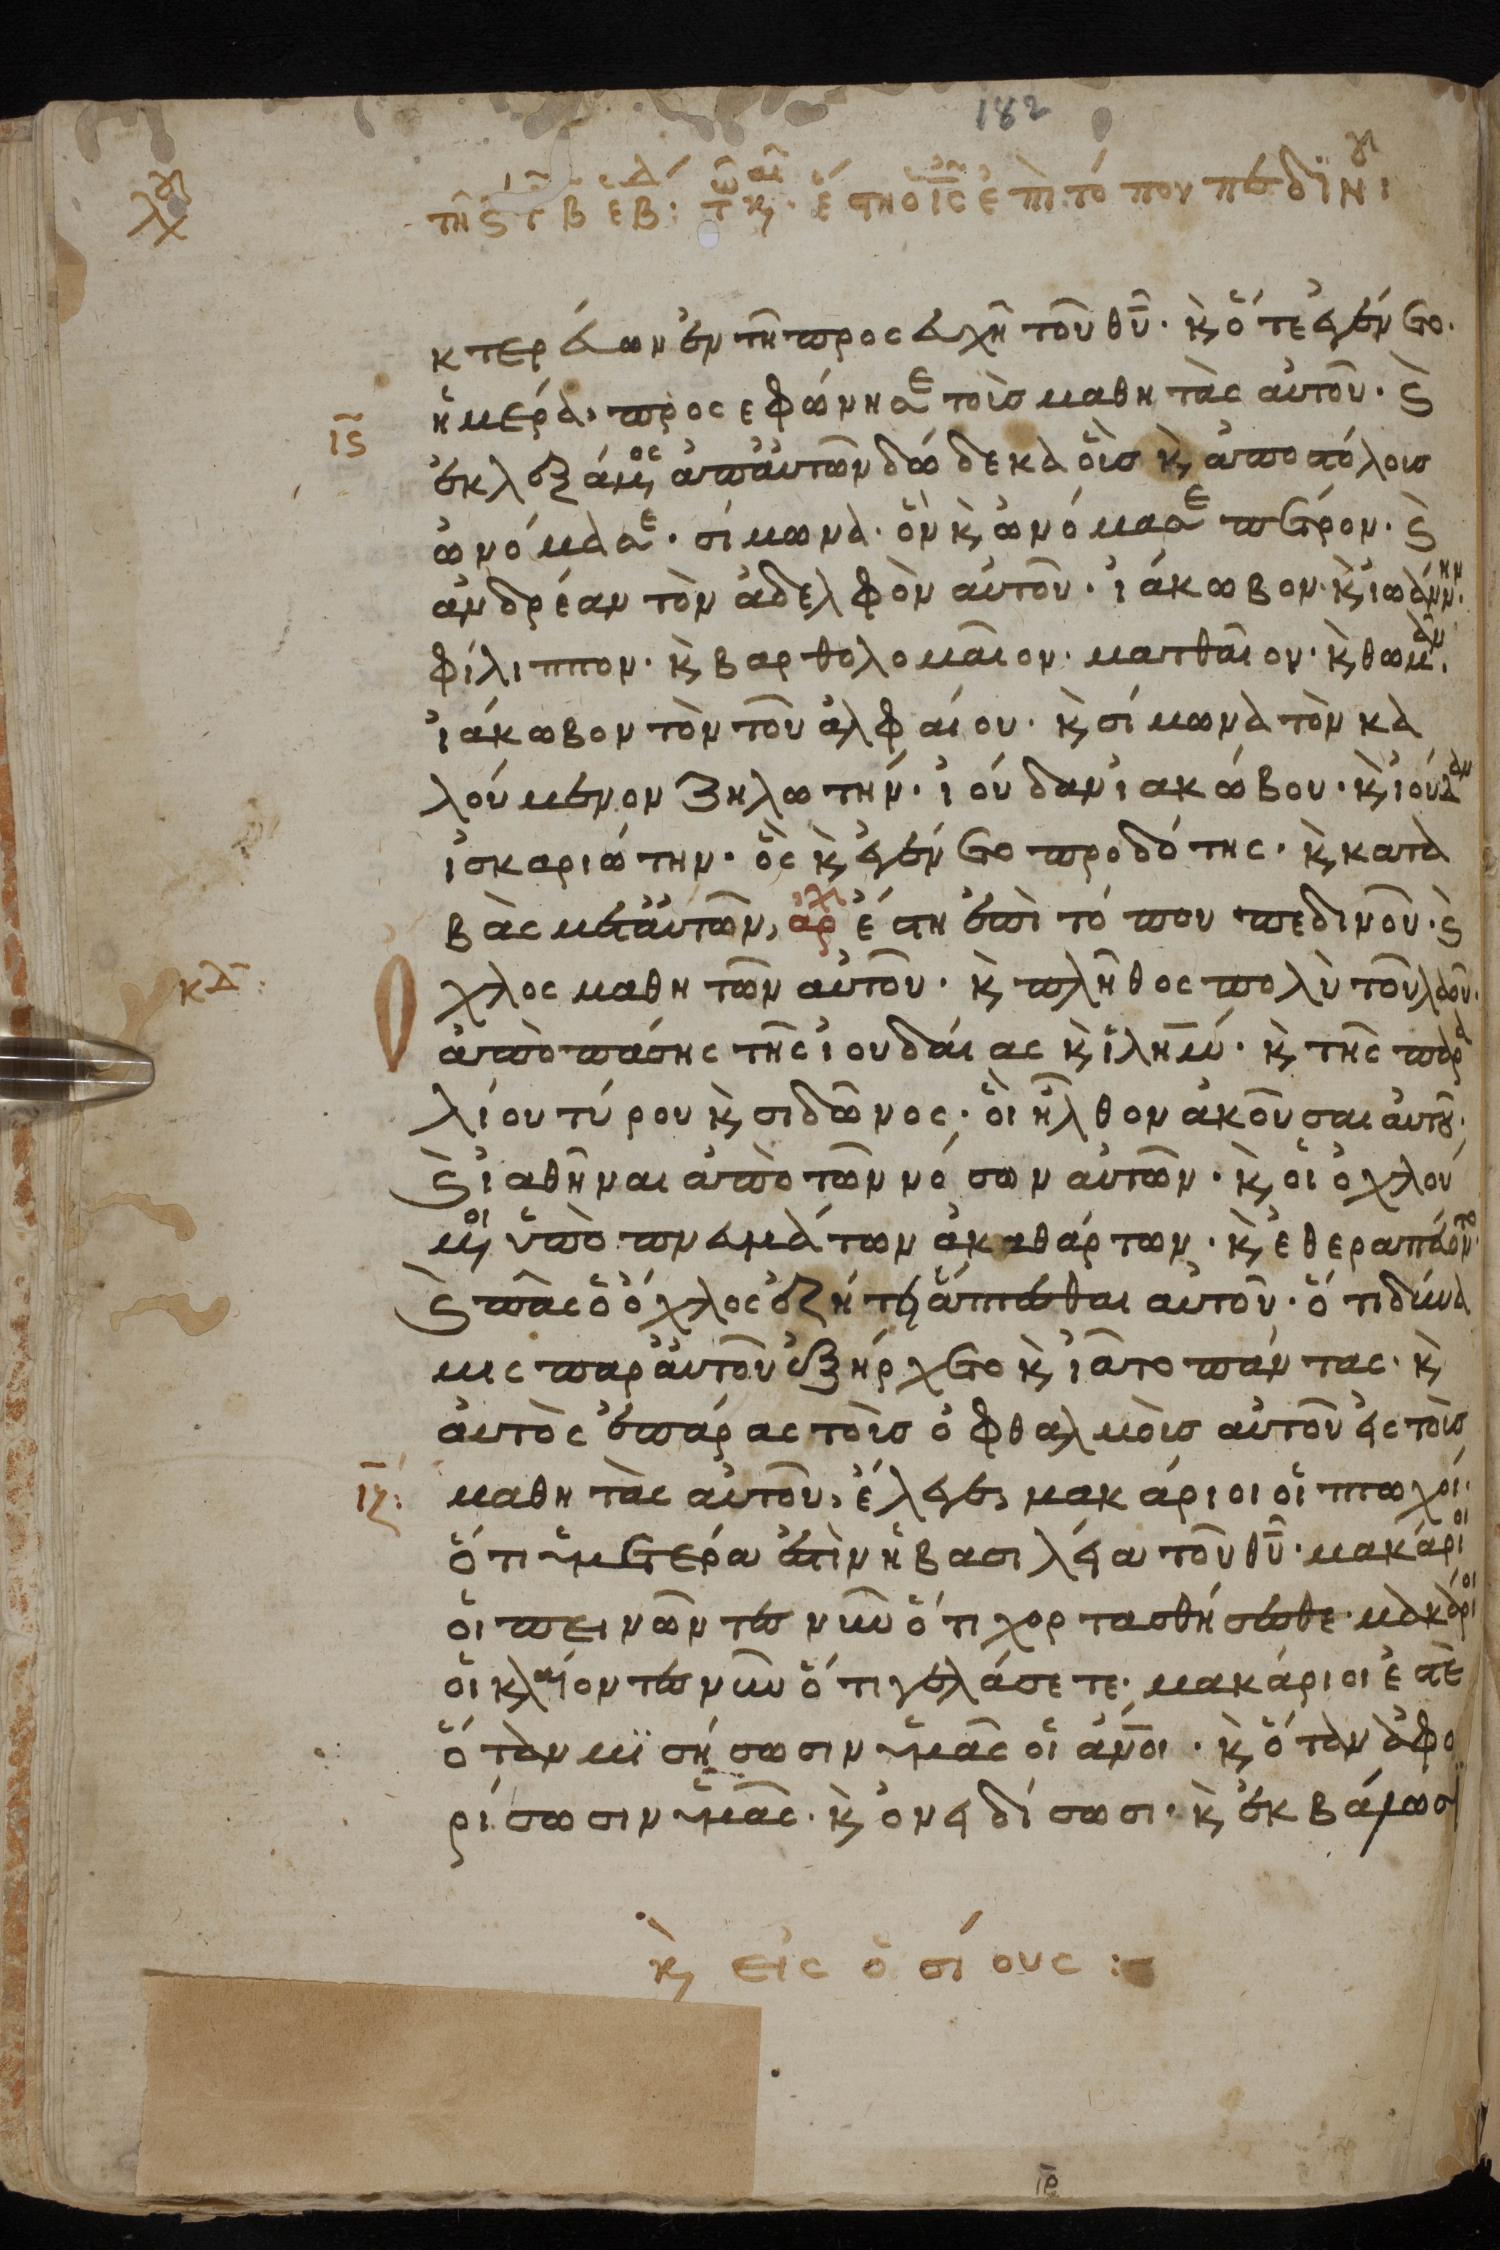 182
ἔστη ὁ ῑς̄ ἐπὶ τόπου πεδϊν
κτερεύων ἐν τῆ προσευχῆ τοῦ θῡ· κ̀ ὅτε ἐγένετο
ῑϛ ἡμέρα· προσεφώνησε τοὺς μαθητὰς αὐτοῦ· κ̀
ἐκλεξάμενος ἀπ' αὐτῶν δώδεκα οὓς κ̀ ἀποστόλους
ὠνόμασε· σίμωνα· ὃν κ̀ ὠνόμασε πέτρον· κ̀
ἀνδρέαν τὸν ἀδελφὸν αὐτοῦ· ἰάκωβον· κ̀ ἰωάννην·
φίλιππον· κ̀ βαρθολομαῖον· ματθαῖον· κ̀ θωμᾶν·
ἰάκωβον τὸν τοῦ ἀλφαίου· κ̀ σίμωνα τὸν κα
λούμενον ζηλωτήν· ἰούδαν ἰακώβου· κ̀ ἰούδαν
ἰσκαριώτην· ὃς κ̀ ἐγένετο προδότης· κ̀ κατα
βὰς μετ' αὐτῶν, ἀρχ ἔστη ἐπὶ τόπου πεδινοῦ· κ̀
κδ̄: ὄχλος μαθητῶν αὐτοῦ· κ̀ πλῆθος πολὺ τοῦ λαοῦ·
ἀπὸ πάσης τῆς ἰουδαίας κ̀ ἱλη̄μ· κ̀ τῆς παρα
λίου τύρου κ̀ σιδῶνος· οἳ ἦλθον ἀκοῦσαι αὐτοῦ·
κ̀ ἰαθῆναι ἀπὸ τῶν νόσων αὐτῶν· κ̀ οἱ ὀχλού
μενοι ὑπὸ πνευμάτων ἀκαθάρτων· κ̀ ἐθεραπεύοντο·
κ̀ πᾶς ὁ ὄχλος ἐζήτει ἅπτεσθαι αὐτοῦ· ὅτι δύνα
μις παρ' αὐτοῦ ἐξήρχετο κ̀ ἰᾶτο πάντας· κ̀
αὐτὸς ἐπάρας τοὺς ὀφθαλμοὺς αὐτοῦ εἰς τοὺς
ῑζ: μαθητὰς αὐτοῦ, ἔλεγεν, μακάριοι οἱ πτωχοί·
ὅτι ὑμετέρα ἐστὶν ἡ βασιλεία τοῦ θῡ· μακάριοι
οἱ πεινῶντες νῦν ὅτι χορτασθήσεσθε· μακάριοι
οἱ κλαίοντες νῦν ὅτι γελάσετε· μακάριοι ἐστὲ
ὅταν μϊσήσωσιν ὑμᾶς οἱ ᾱν̄οι· κ̀ ὅταν ἀφο
ρίσωσιν ὑμᾶς· κ̀ ὀνειδίσωσι· κ̀ ἐκβάλωσι
κ̀ εἰς ὁσίους :